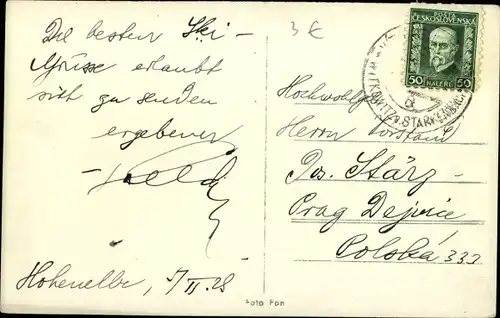 Die besten Ski-
Grüsse erlaubt
sich zu senden
ergebener
Hohenelbe, II. 28
3 €
POŠTA
ČESKOSLOVENSKÁ
50 HALÉŘŮ 50
WITKOWITZ STARKENBACH
Hochwohlg.
Herrn Vorstand
Jos. Stärz
Prag Dejvice
Polská 332
Foto Fon